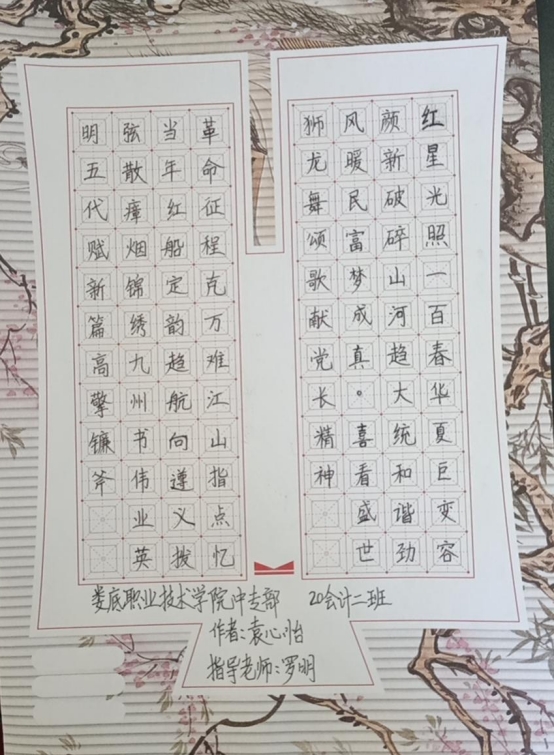 红星光照一百春华夏巨变容
颜新破碎山河趋大统和谐劲
风暖民富梦成真。喜看盛世
狮龙舞颂歌献党长精神
革命征程克万难江山指点忆
当年红船定韵趋航向遵义拨
弦散瘴烟锦绣九州书伟业英
明五代赋新篇高擎镰斧
娄底职业技术学院中专部 20会计二班
作者:袁心怡
指导老师:罗明